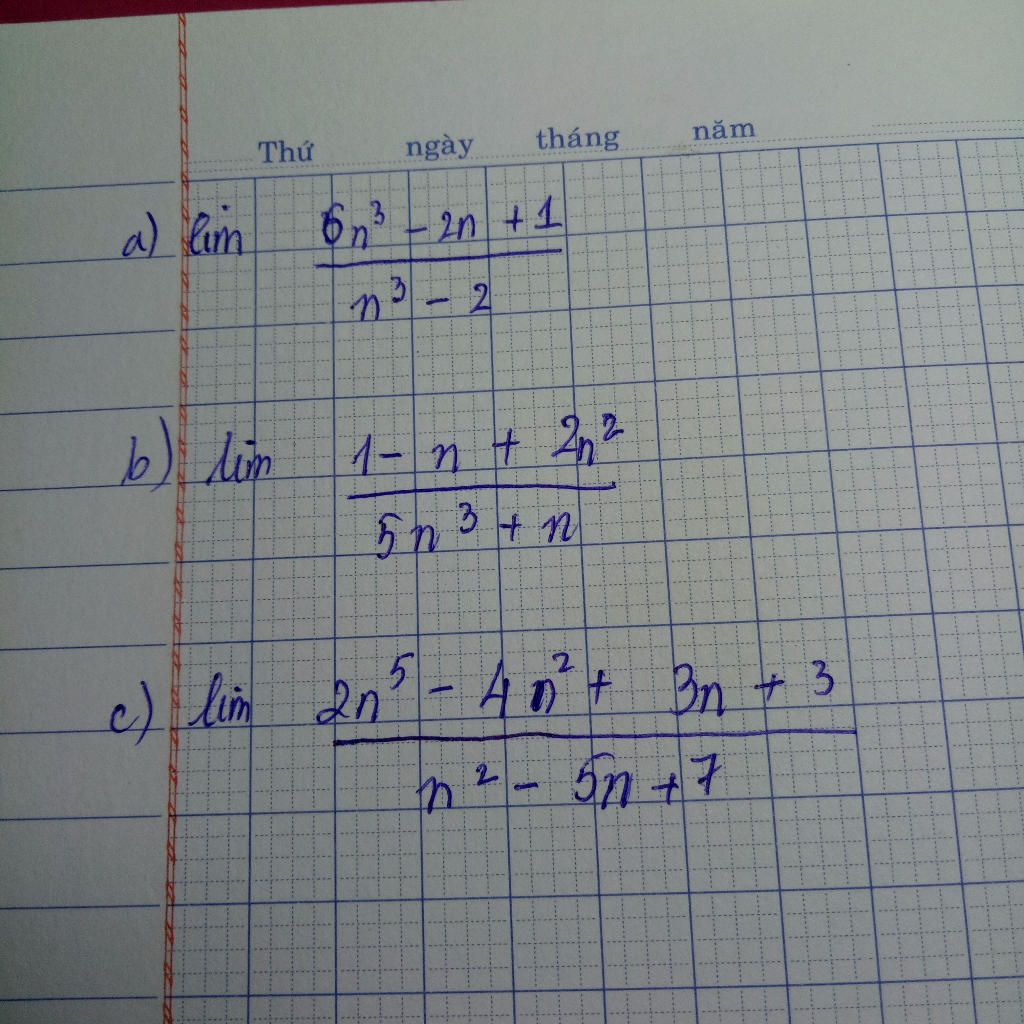 Thứ ngày tháng năm
a) lim 6n³ - 2n + 1
n³ - 2
b) lim 1 - n + 2n²
5n³ + n
c) lim 2n⁵ - 4n² + 3n + 3
n² - 5n + 7